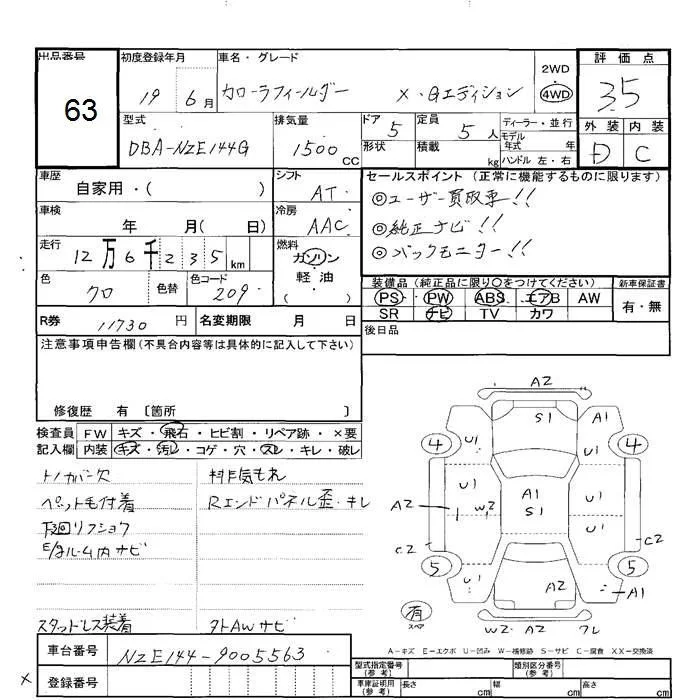 出品番号 初度登録年月 車名・グレード 2WD 4WD 評価点
63 19 6月 カローラフィールダー X・Gエディション 3.5
型式 排気量 ドア 定員 ディーラー・並行 外装 内装
DBA-NZE144G 1500CC 5 5人 モデル年式 年 D C
形状 積載 kg ハンドル 左・右
車歴 自家用・( ) シフト AT セールスポイント (正常に機能するものに限ります)
◎ユーザー買取車!!
車検 年 月( 日) 冷房 AAC ◎純正ナビ!!
走行 12万6千235km 燃料 ガソリン ◎バックモニター!!
軽油
( )
色 クロ 色替 色コード 209 装備品(純正品に限り○をつけてください) 新車保証書
PS PW ABS エアB AW 有・無
R券 11730円 名変期限 月 日 SR ナビ TV カワ
注意事項申告欄(不具合内容等は具体的に記入して下さい) 後日品
修復歴 有 〔箇所 〕
検査員 FW キズ・飛石・ヒビ割・リペア跡・×要
記入欄 内装 キズ・汚レ・コゲ・穴・スレ・キレ・破レ
トノカバー欠
ペット毛付着
下廻リフショク
E/gルーム内サビ
スタッドレス装着
Rエンドパネル歪・キレ
外AWサビ
A2
S1 A1
4 U1 4
U1 A1 U1
A2 W2 S1 U1 A2
C2 C2
5 U1 A2 5
A1
有 スペア W2 A2 ワレ
A-キズ E-エクボ U-凹み W-補修跡 S-サビ C-腐食 XX-交換済
車台番号 NZE144-9005563
登録番号
型式指定番号(参考) 類別区分番号(参考)
車庫証明用(参考) 長さ cm 幅 cm 高さ cm